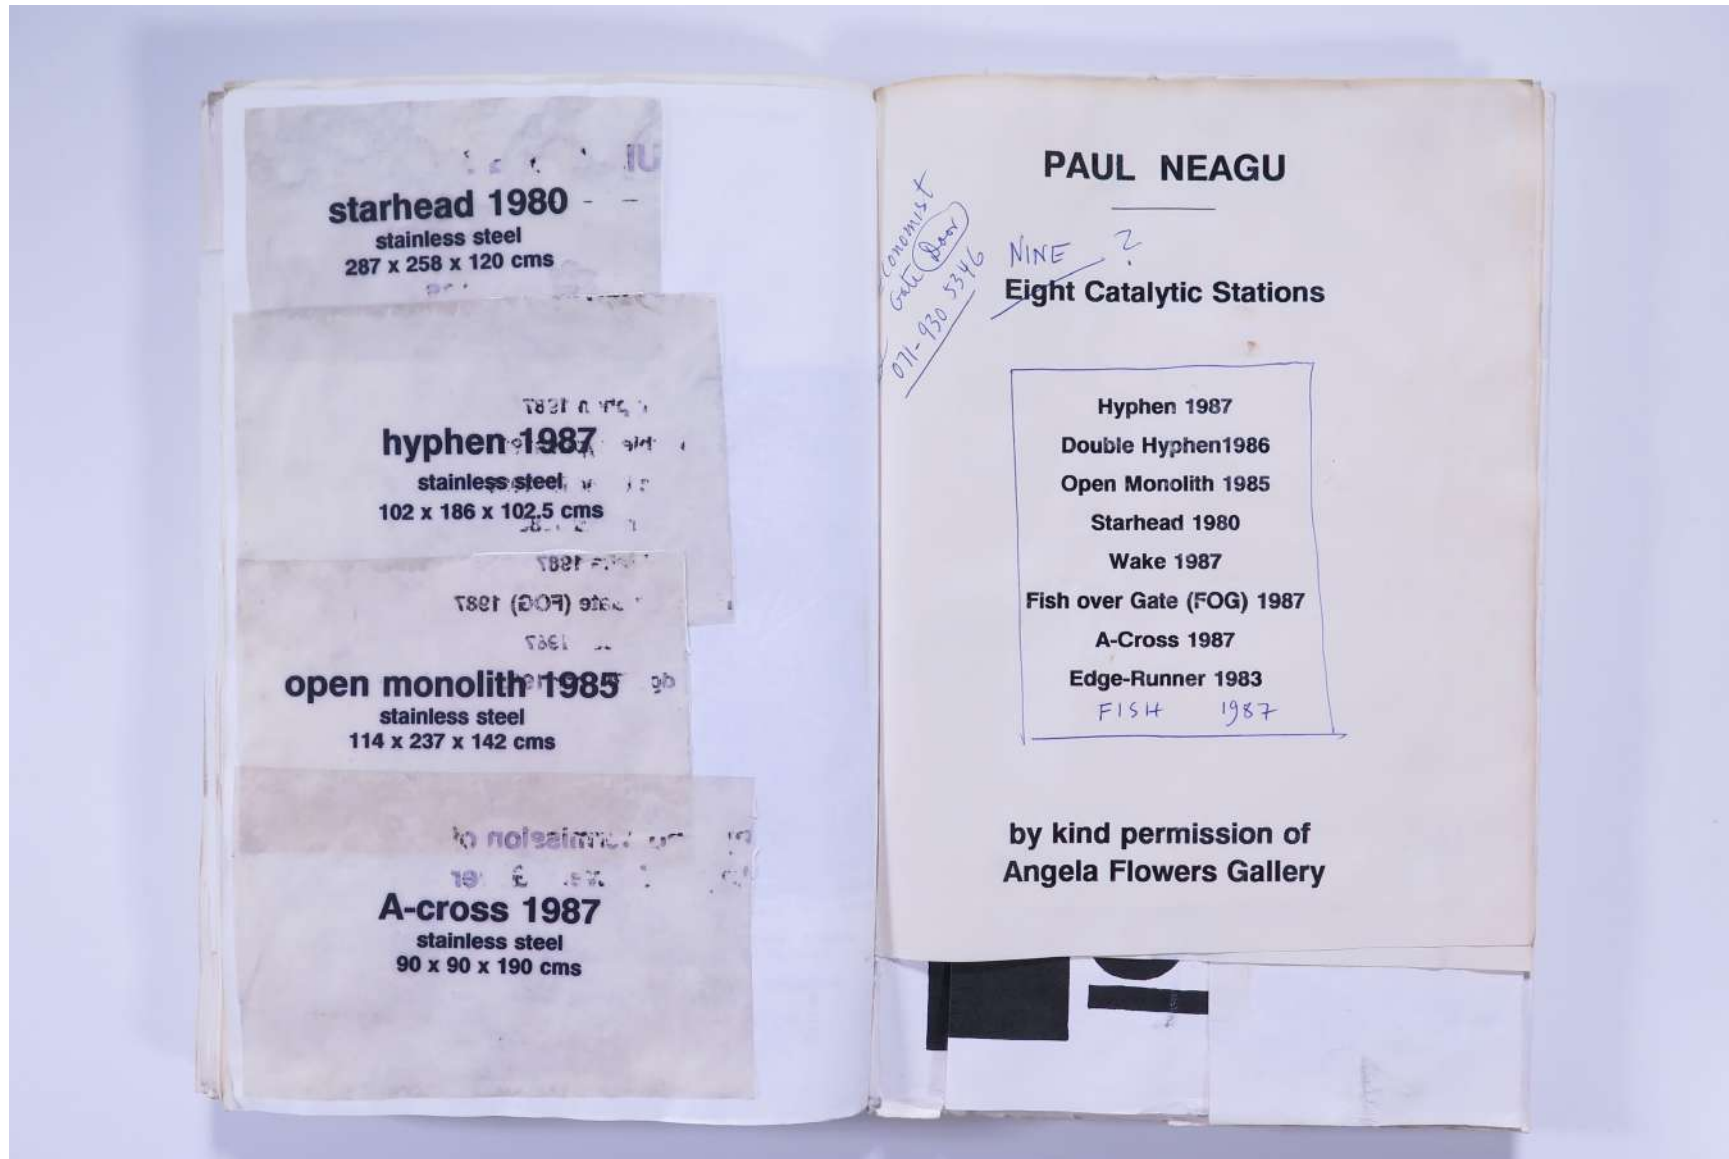 starhead 1980
stainless steel
287 x 258 x 120 cms
hyphen 1987
stainless steel
102 x 186 x 102.5 cms
open monolith 1985
stainless steel
114 x 237 x 142 cms
A-cross 1987
stainless steel
90 x 90 x 190 cms
PAUL NEAGU
conomist
Gate Door
071-930 5346
NINE ?
Eight Catalytic Stations
Hyphen 1987
Double Hyphen1986
Open Monolith 1985
Starhead 1980
Wake 1987
Fish over Gate (FOG) 1987
A-Cross 1987
Edge-Runner 1983
FISH 1987
by kind permission of
Angela Flowers Gallery